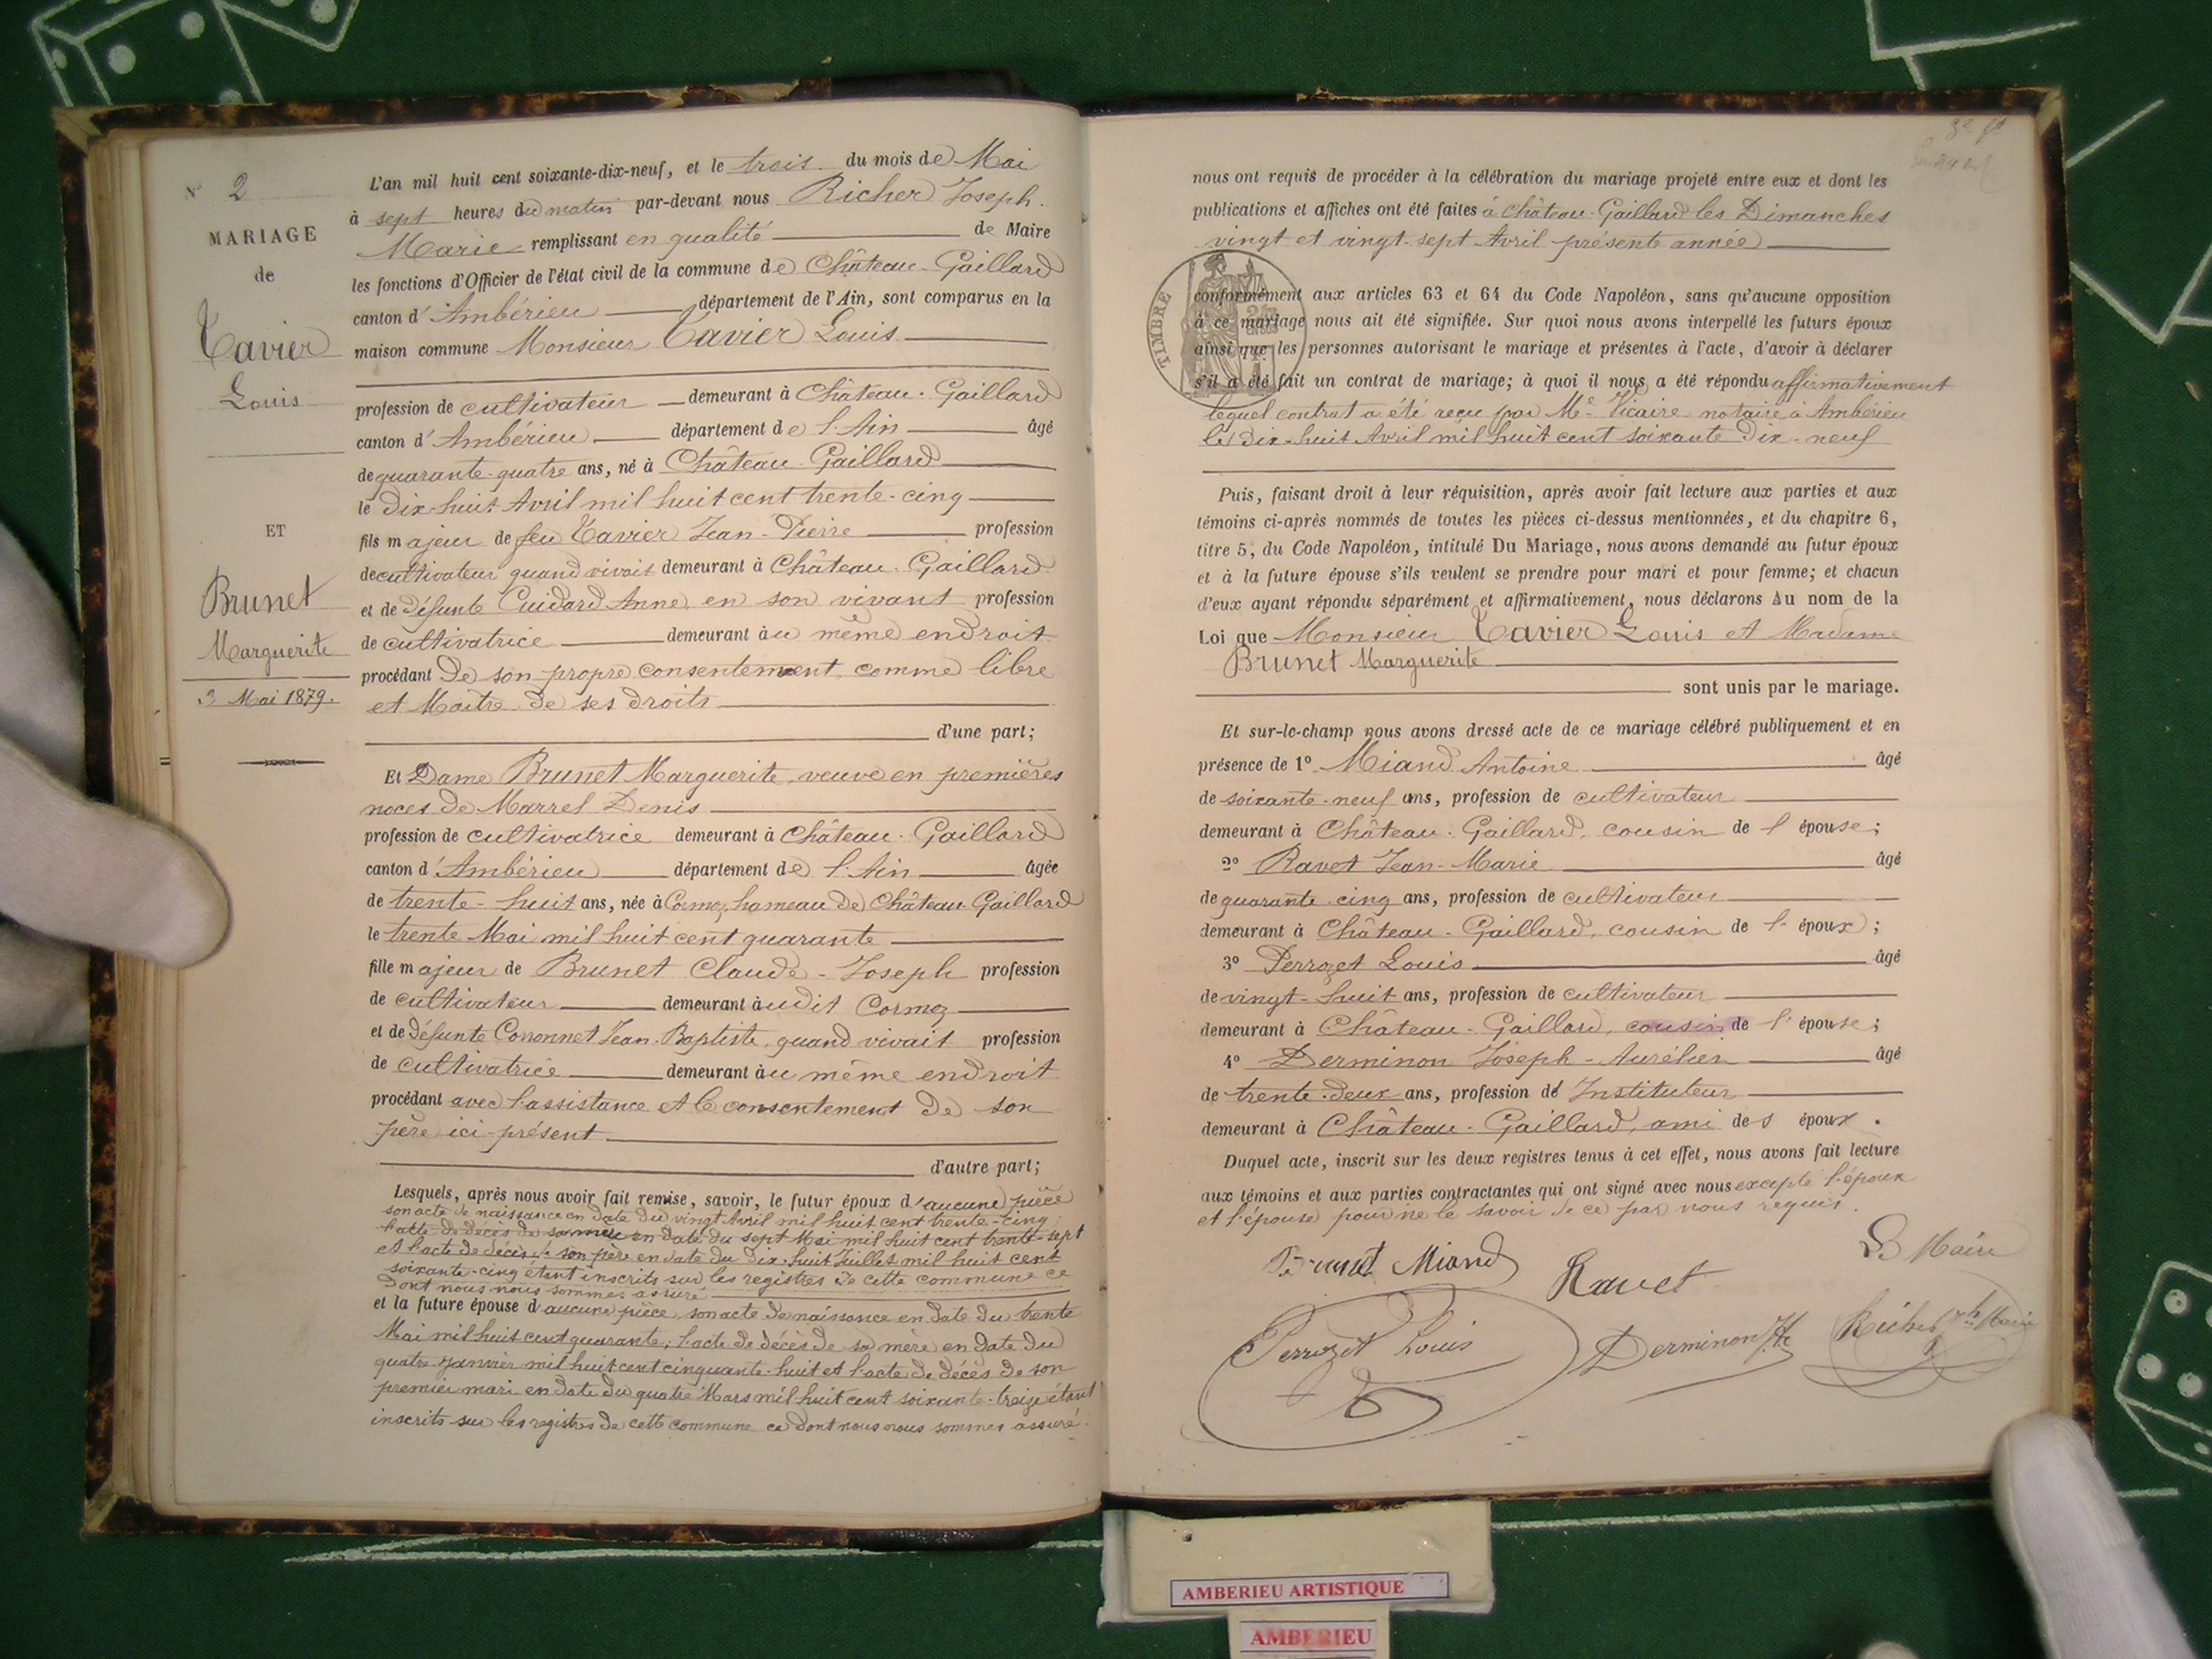 N° 2
MARIAGE
de
Tavier
Louis
ET
Brunet
Marguerite
3 Mai 1879.
L'an mil huit cent soixante-dix-neuf, et le trois du mois de Mai
à sept heures du matin par-devant nous Richer Joseph-
Marie remplissant en qualité de Maire
les fonctions d'Officier de l'état civil de la commune de Château-Gaillard
canton d'Ambérieu département de l'Ain, sont comparus en la
maison commune Monsieur Tavier Louis
profession de cultivateur demeurant à Château-Gaillard
canton d'Ambérieu département de l'Ain âgé
de quarante-quatre ans, né à Château-Gaillard
le dix-huit Avril mil huit cent trente-cinq
fils majeur de feu Tavier Jean-Pierre profession
de cultivateur quand vivait demeurant à Château-Gaillard
et de défunte Cuidard Anne, en son vivant profession
de cultivatrice demeurant au même endroit
procédant de son propre consentement, comme libre
et Maître de ses droits
d'une part;
Et Dame Brunet Marguerite, veuve en premières
noces de Marrel Denis
profession de cultivatrice demeurant à Château-Gaillard
canton d'Ambérieu département de l'Ain âgée
de trente-huit ans, née à Cormoz, hameau de Château-Gaillard
le trente Mai mil huit cent quarante
fille majeur de Brunet Claude-Joseph profession
de cultivateur demeurant audit Cormoz
et de défunte Coronnet Jean-Baptiste, quand vivait profession
de cultivatrice demeurant au même endroit
procédant avec l'assistance et le consentement de son
père ici présent
d'autre part;
Lesquels, après nous avoir fait remise, savoir, le futur époux d'aucune pièce
son acte de naissance en date du vingt Avril mil huit cent trente-cinq
l'acte de décès de sa mère en date du sept Mai mil huit cent trente-sept
et l'acte de décès de son père en date du dix-huit Juillet mil huit cent
soixante-cinq étant inscrits sur les registres de cette commune ce
dont nous nous sommes assuré
et la future épouse d'aucune pièce, son acte de naissance en date du trente
Mai mil huit cent quarante; l'acte de décès de sa mère en date du
quatre Janvier mil huit cent cinquante-huit et l'acte de décès de son
premier mari en date du quatre Mars mil huit cent soixante-treize étant
inscrits sur les registres de cette commune ce dont nous nous sommes assuré.
nous ont requis de procéder à la célébration du mariage projeté entre eux et dont les
publications et affiches ont été faites à Château-Gaillard les Dimanches
vingt et vingt-sept Avril présente année
TIMBRE
conformément aux articles 63 et 64 du Code Napoléon, sans qu'aucune opposition
à ce mariage nous ait été signifiée. Sur quoi nous avons interpellé les futurs époux
ainsi que les personnes autorisant le mariage et présentes à l'acte, d'avoir à déclarer
s'il a été fait un contrat de mariage; à quoi il nous a été répondu affirmativement
lequel contrat a été reçu par Me Vicaire notaire à Ambérieu
le dix-huit Avril mil huit cent soixante dix-neuf
Puis, faisant droit à leur réquisition, après avoir fait lecture aux parties et aux
témoins ci-après nommés de toutes les pièces ci-dessus mentionnées, et du chapitre 6,
titre 5, du Code Napoléon, intitulé Du Mariage, nous avons demandé au futur époux
et à la future épouse s'ils veulent se prendre pour mari et pour femme; et chacun
d'eux ayant répondu séparément et affirmativement, nous déclarons Au nom de la
Loi que Monsieur Tavier Louis et Madame
Brunet Marguerite
sont unis par le mariage.
Et sur-le-champ nous avons dressé acte de ce mariage célébré publiquement et en
présence de 1° Miand Antoine âgé
de soixante-neuf ans, profession de cultivateur
demeurant à Château-Gaillard, cousin de l'épouse;
2° Ravet Jean-Marie âgé
de quarante-cinq ans, profession de cultivateur
demeurant à Château-Gaillard, cousin de l'époux;
3° Perrozet Louis âgé
de vingt-huit ans, profession de cultivateur
demeurant à Château-Gaillard, cousin de l'épouse;
4° Derminon Joseph-Aurélien âgé
de trente-deux ans, profession de Instituteur
demeurant à Château-Gaillard, ami des époux.
Duquel acte, inscrit sur les deux registres tenus à cet effet, nous avons fait lecture
aux témoins et aux parties contractantes qui ont signé avec nous excepté l'époux
et l'épouse pour ne le savoir de ce par nous requis.
Miand
Ravet
Le Maire
Perrozet Louis
Derminon
Richer
AMBERIEU ARTISTIQUE
AMBERIEU